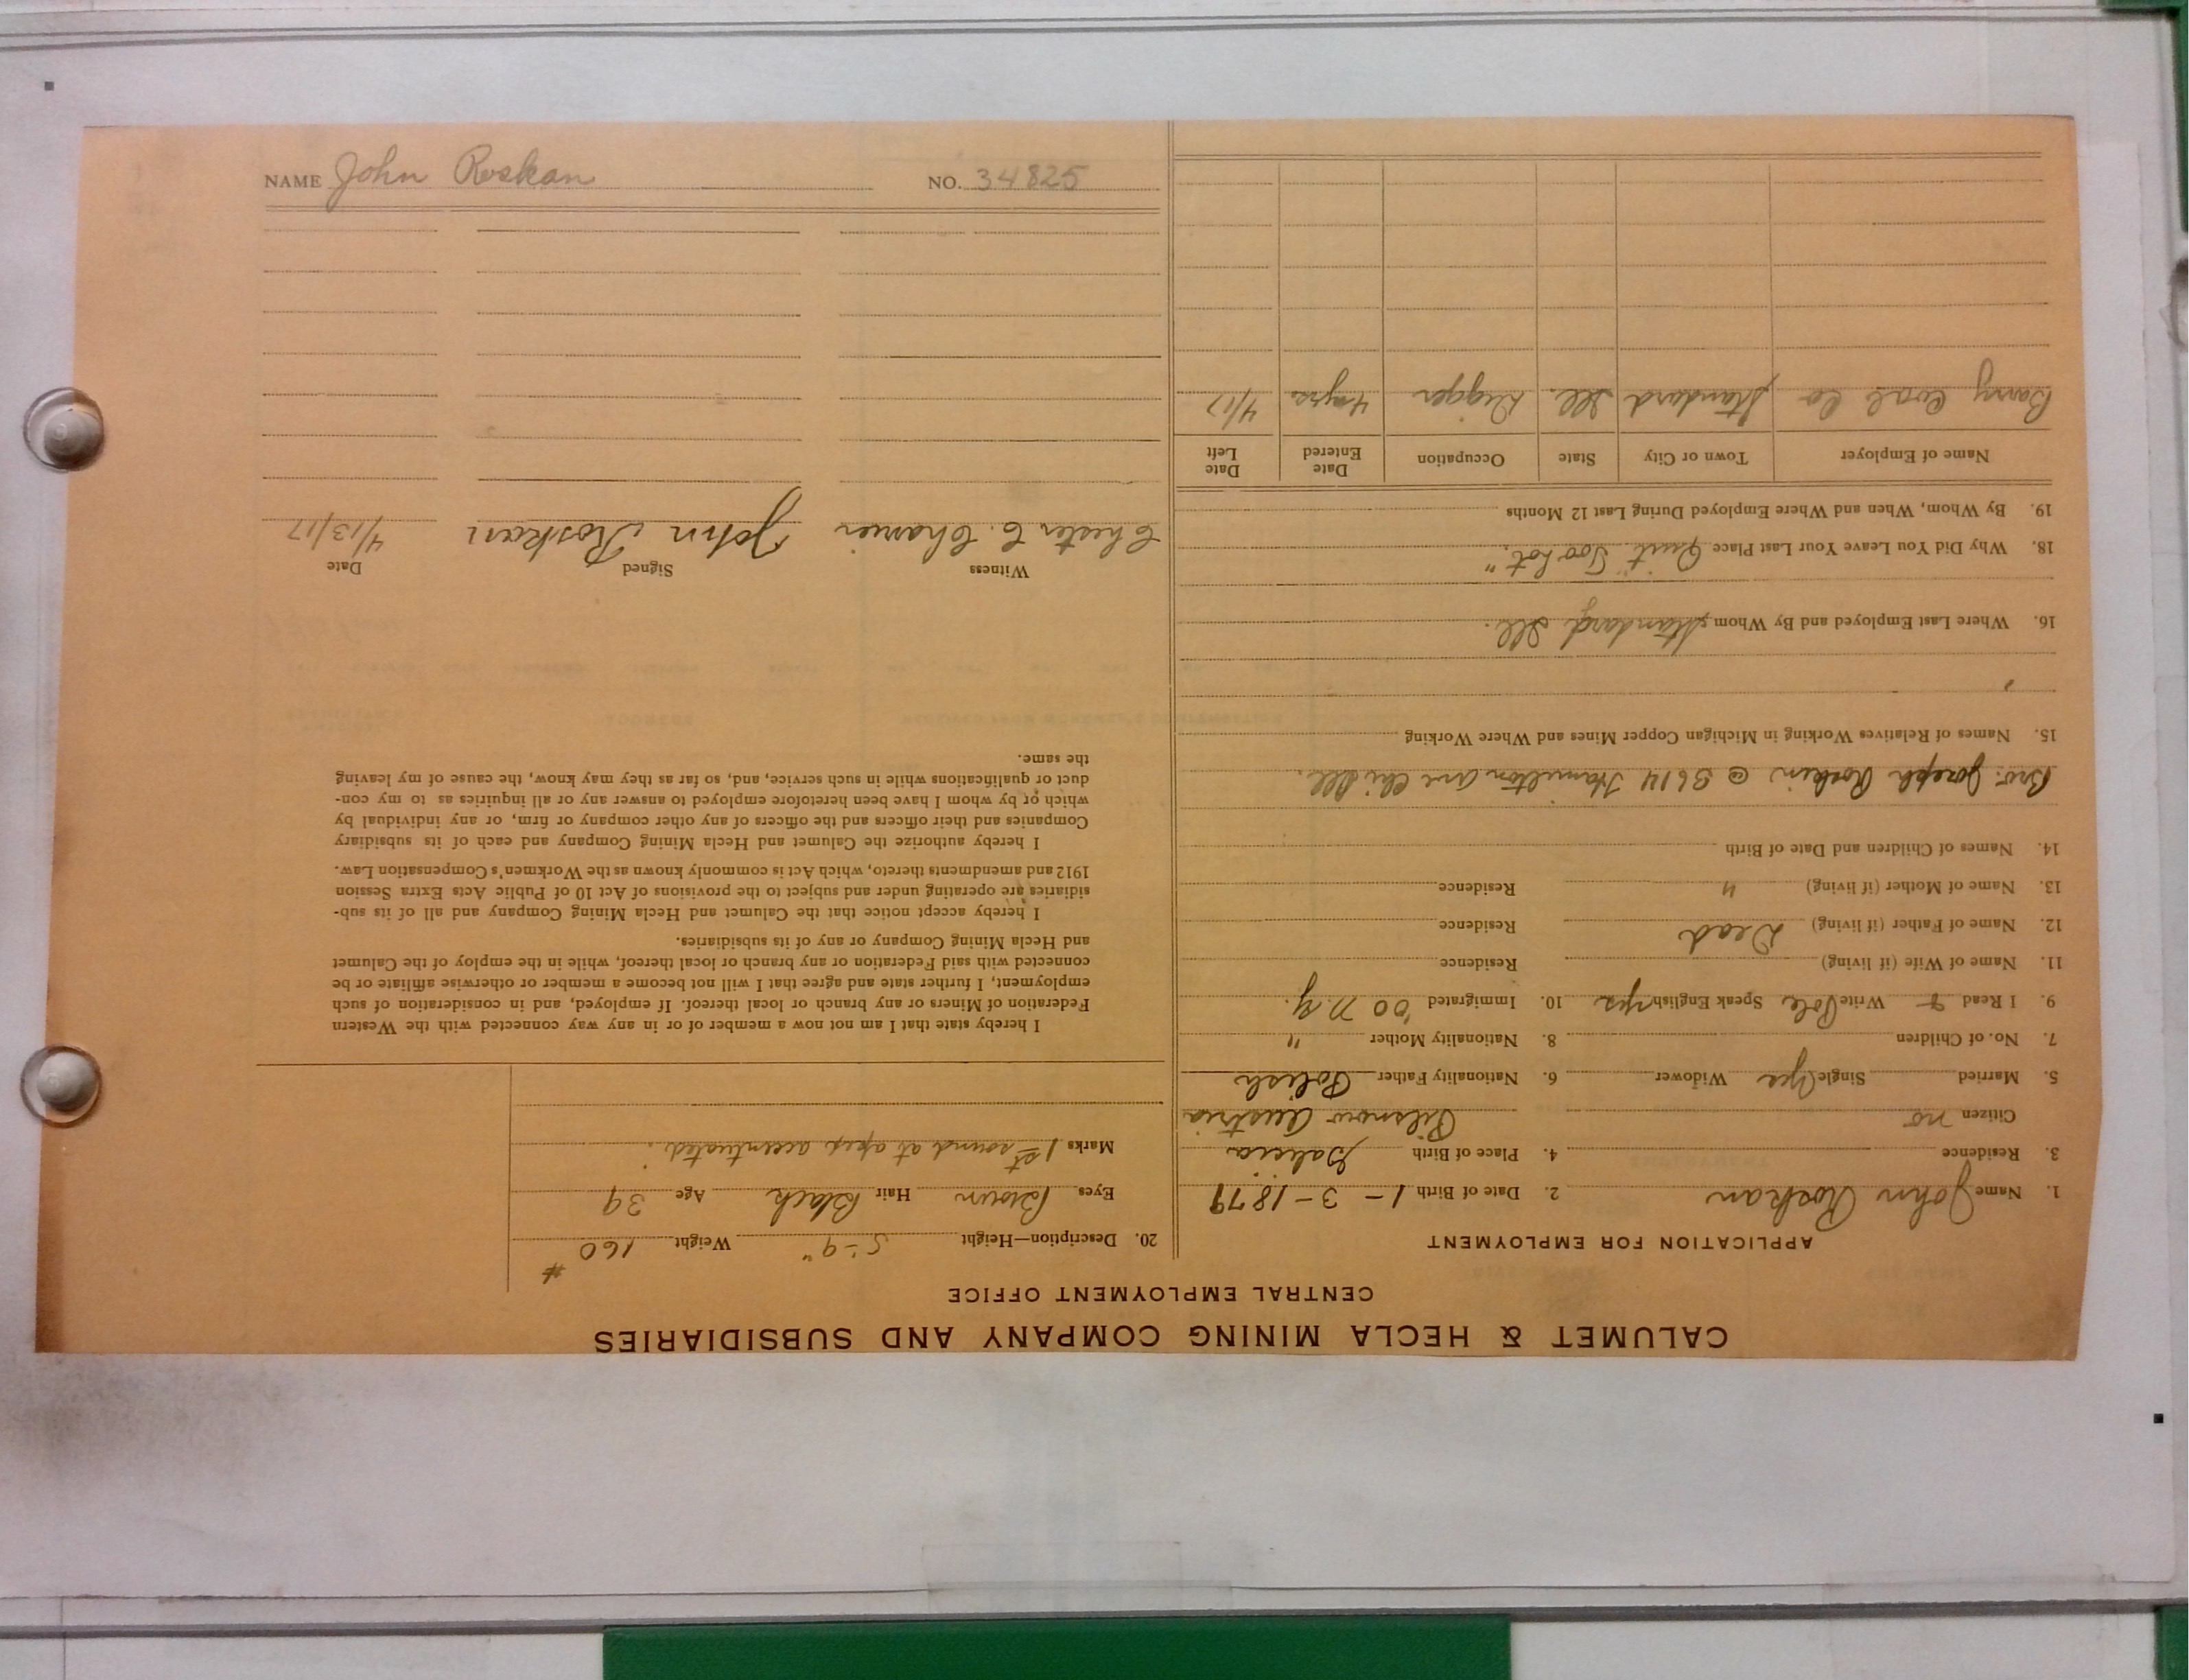 CALUMET & HECLA MINING COMPANY AND SUBSIDIARIES
CENTRAL EMPLOYMENT OFFICE
APPLICATION FOR EMPLOYMENT
1. Name John Roskan 2. Date of Birth 1-3-1879
3. Residence 4. Place of Birth Galicia
Citizen no Pilsnow Austria
5. Married Single Yes Widower 6. Nationality Father Polish
7. No. of Children 8. Nationality Mother "
9. I Read & Write Pole Speak English yes 10. Immigrated '00 N.Y.
11. Name of Wife (if living) Residence
12. Name of Father (if living) Dead Residence
13. Name of Mother (if living) " Residence
14. Names of Children and Date of Birth
Bro. Joseph Roskin @ 3614 Hamilton Ave Chi Ill.
15. Names of Relatives Working in Michigan Copper Mines and Where Working
16. Where Last Employed and By Whom, Standard Ill.
18. Why Did You Leave Your Last Place Quit "Too hot."
19. By Whom, When and Where Employed During Last 12 Months
Name of Employer Town or City State Occupation Date Entered Date Left
Barry Coal Co Standard Ill. Digger 4 yrs 4/17
20. Description—Height 5-9" Weight 160 #
Eyes Brown Hair Black Age 39
Marks 1st sound at apex accentuated.
I hereby state that I am not now a member of or in any way connected with the Western
Federation of Miners or any branch or local thereof. If employed, and in consideration of such
employment, I further state and agree that I will not become a member or otherwise affiliate or be
connected with said Federation or any branch or local thereof, while in the employ of the Calumet
and Hecla Mining Company or any of its subsidiaries.
I hereby accept notice that the Calumet and Hecla Mining Company and all of its sub-
sidiaries are operating under and subject to the provisions of Act 10 of Public Acts Extra Session
1912 and amendments thereto, which Act is commonly known as the Workmen's Compensation Law.
I hereby authorize the Calumet and Hecla Mining Company and each of its subsidiary
Companies and their officers and the officers of any other company or firm, or any individual by
which or by whom I have been heretofore employed to answer any or all inquiries as to my con-
duct or qualifications while in such service, and, so far as they may know, the cause of my leaving
the same.
Witness Signed Date
Chester C. John Roskan 4/13/17
NAME John Roskan NO. 34825